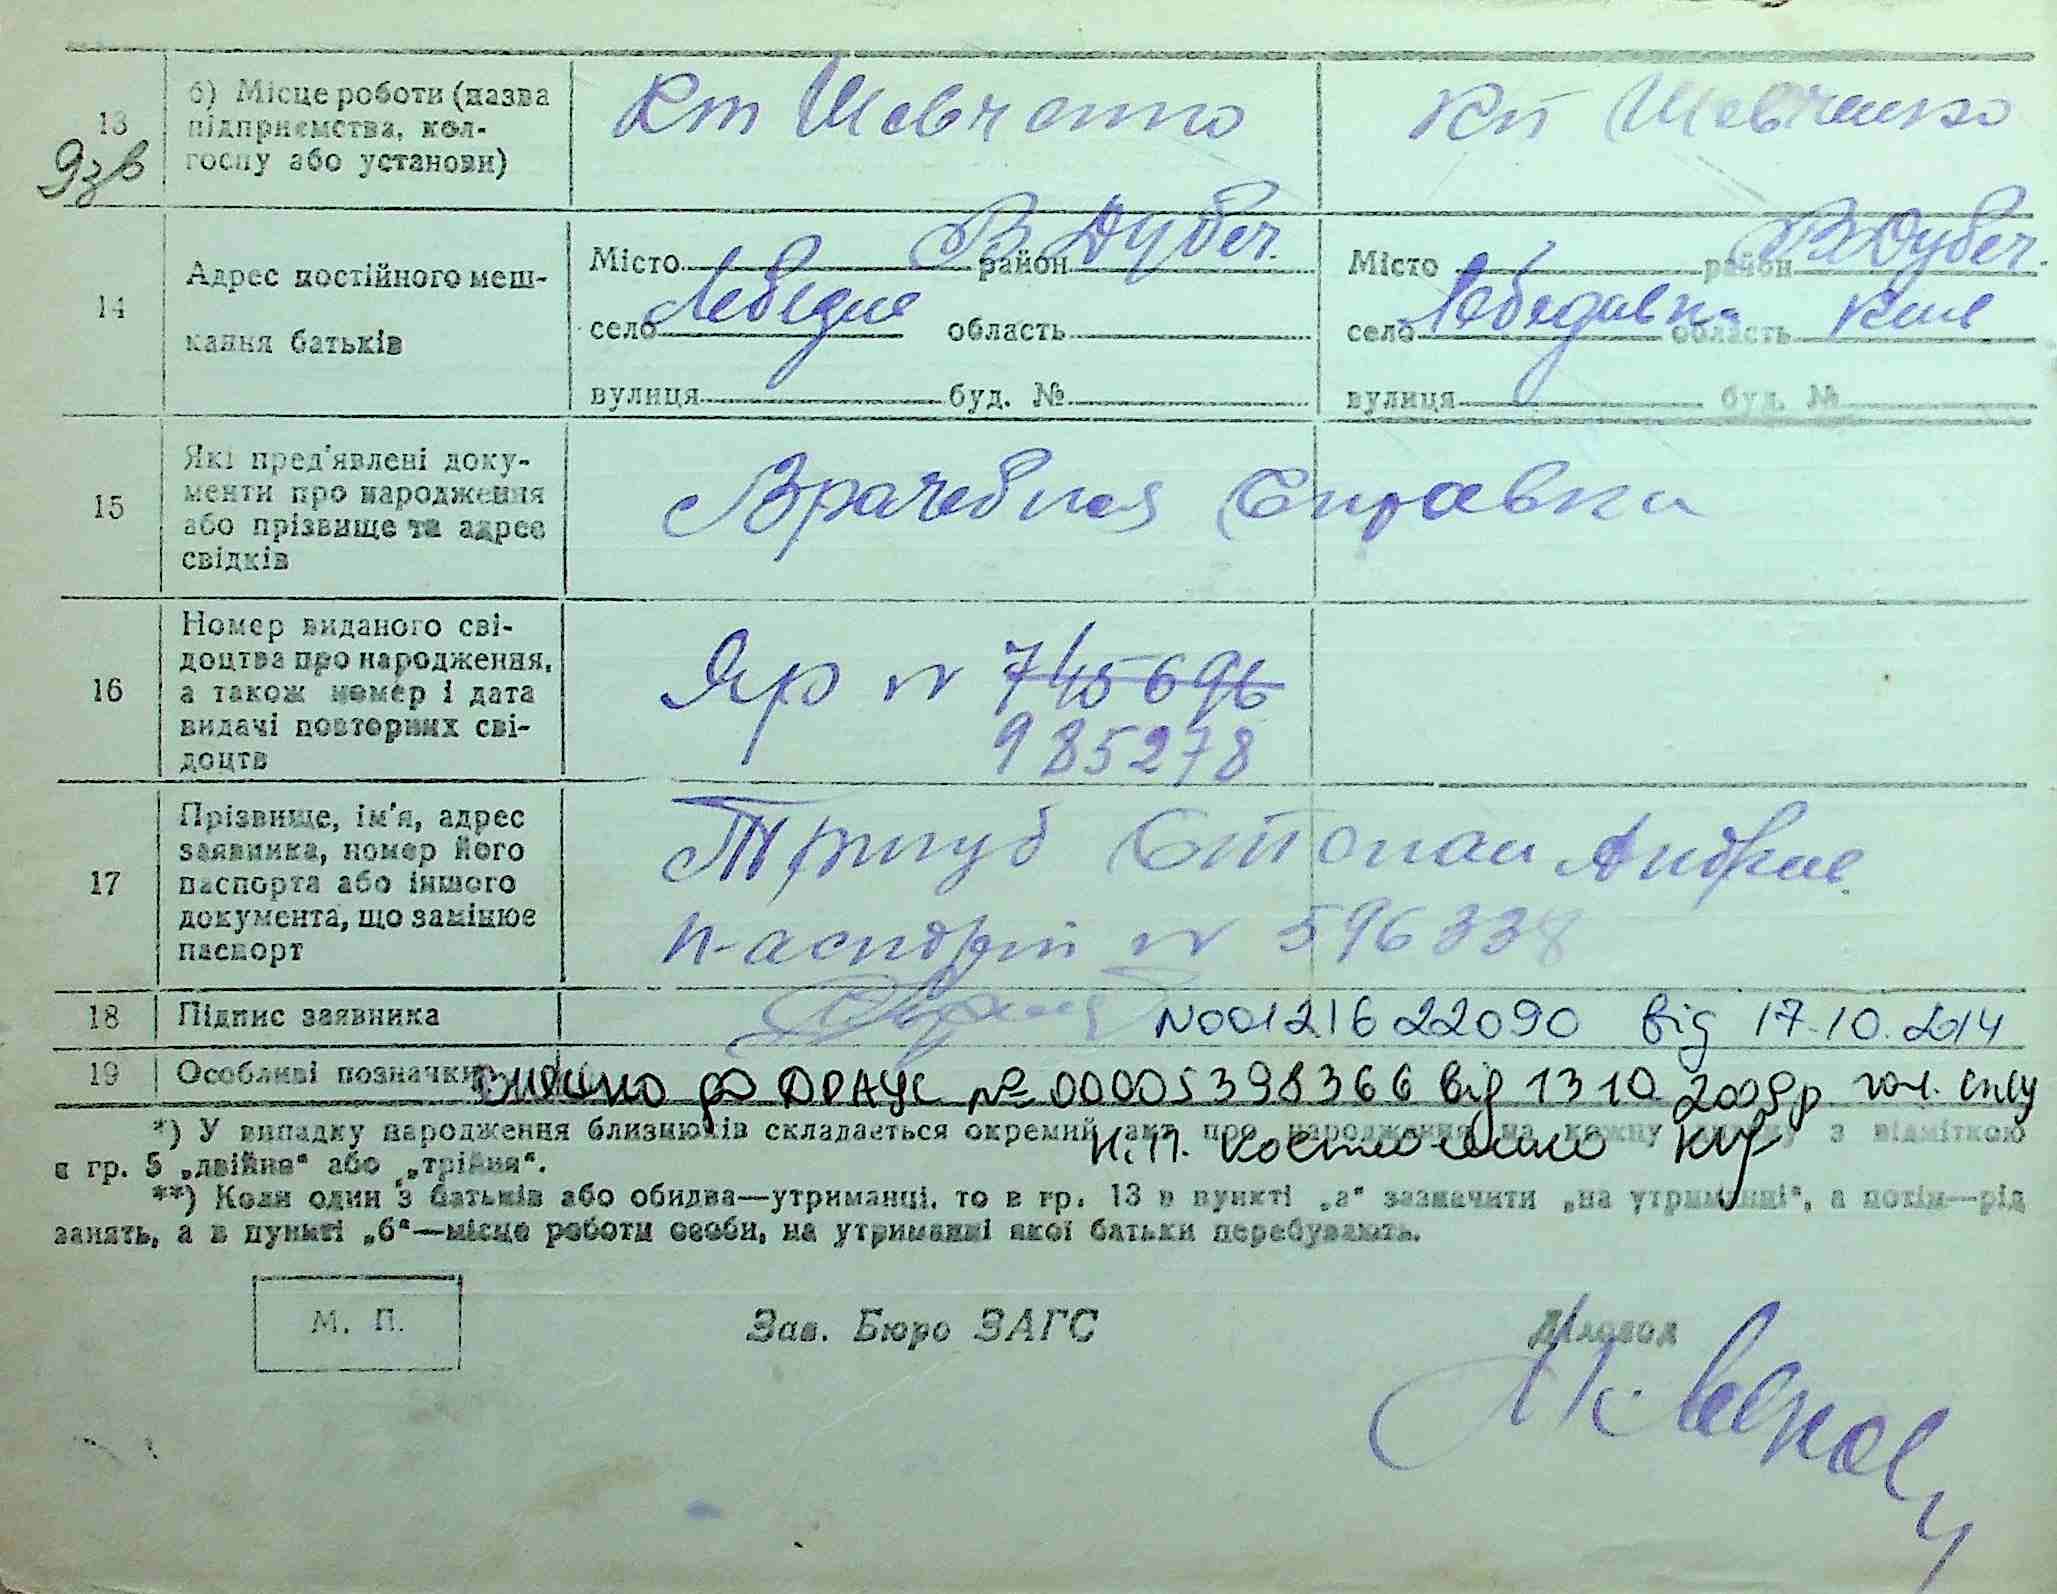 13 б) Місце роботи (назва підприємства, колгоспу або установи) Кт Шевченко Кп Шевченко
14 Адрес постійного мешкання батьків
Місто район В Дубеч. Місто район В Дубеч.
село Лебедив область село область Киев
вулиця буд. № вулиця буд. №
15 Які пред'явлені документи про народження або прізвище та адрес свідків Врачебная Справка
16 Номер виданого свідоцтва про народження, а також номер і дата видачі повторних свідоцтв Яр N 745696
985278
17 Прізвище, ім'я, адрес заявника, номер його паспорта або іншого документа, що замінює паспорт Тригуб Степан Андрие.
паспорт N 596338
18 Підпис заявника N00121622090 від 17.10.2014
19 Особливі позначки внесено до ДРАЦС № 00005398366 від 13 10 2009р.
*) У випадку народження близнюків складається окремий акт про народження на кожну дитину з відміткою
в гр. 5 „двійня“ або „трійня“.
**) Коли один з батьків або обидва—утриманці, то в гр. 13 в пункті „а“ зазначити „на утриманні“, а потім—рід
занять, а в пункті „б“—місце роботи особи, на утриманні якої батьки перебувають.
М. П. Зав. Бюро ЗАГС Діловод